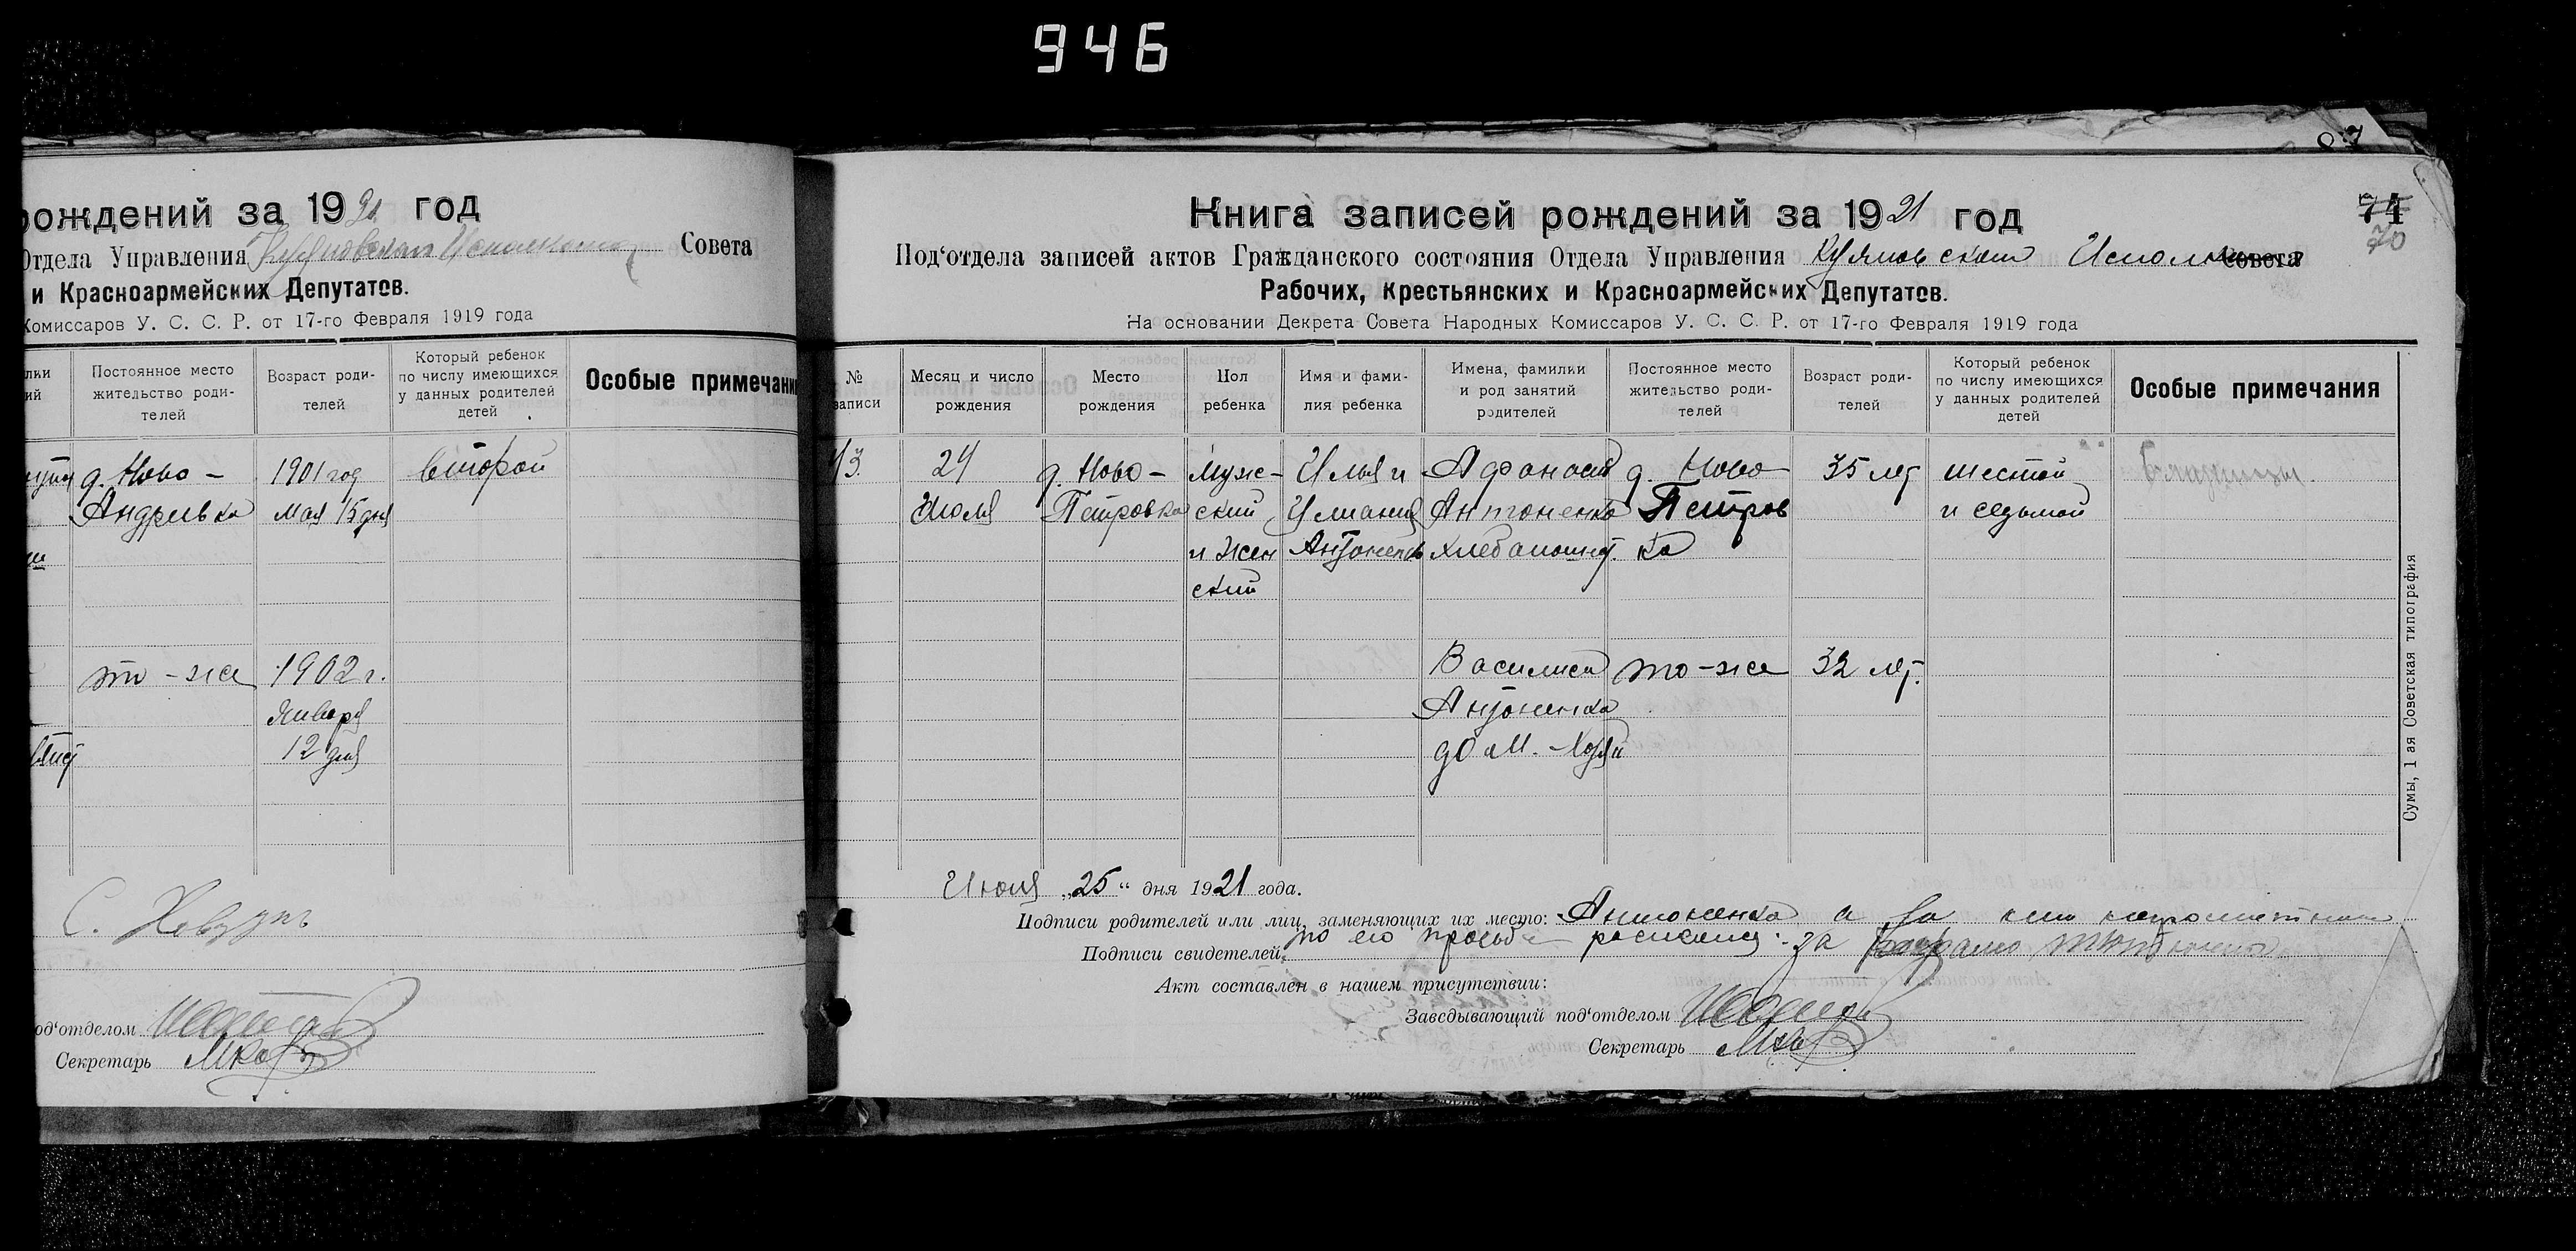 946
рождений за 1921 год
Отдела Управления Совета
и Красноармейских Депутатов.
Комиссаров У. С. С. Р. от 17-го Февраля 1919 года
Постоянное место жительство роди-телей
Возраст роди-телей
Который ребенок по числу имеющихся у данных родителей детей
Особые примечани
д. Ново-
Андреевка
1901 год
мая 15 дня
второй
то-же
1902 г.
Января
12 дня
С.
под'отделом
Секретарь
87
74
70
Книга записей рождений за 1921 год
Под'отдела записей актов Гражданского состояния Отдела Управления Исполком Совета
Рабочих, Крестьянских и Красноармейских Депутатов.
На основании Декрета Совета Народных Комиссаров У. С. С. Р. от 17-го Февраля 1919 года
№ записи
Месяц и число рождения
Место рождения
Пол ребенка
Имя и фами-лия ребенка
Имена, фамилии и род занятий родителей
Постоянное место жительство роди-телей
Возраст роди-телей
Который ребенок по числу имеющихся у данных родителей детей
Особые примечания
13.
24
Июля
д. Ново-
Петровка
Муж-
ский
и жен
ский
Илья и
Улиания
Антоненко
Афанасий
Антоненко
хлебопашец.
д. Ново
Петров
ка
35 лет
шестой
и седьмой
Близнецы.
Василиса
Антоненко
дом. хозяй
то-же
32 лет.
Июля „25“ дня 1921 года.
Подписи родителей или лиц, заменяющих их место: Антоненко а за
Подписи свидетелей: по его просьбе
Акт составлен в нашем присутствии:
Заведывающий под'отделом
Секретарь
Сумы, 1 ая Советская типография